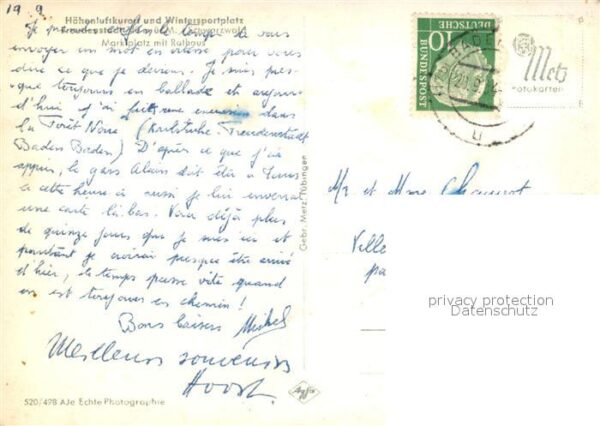 19.9
Höhenluftkurort und Wintersportplatz
Freudenstadt
Schwarzwald
Marktplatz mit Rathaus
Je prends le temps de vous
envoyer un mot en vitesse pour vous
dire ce que je deviens. Je suis pres-
que toujours en ballade et aujour-
d'hui j'ai fait une excursion dans
la Forêt Noire (Karlsruhe - Freudenstadt
Baden Baden) D'après ce que j'ai
appris, le gars Alain doit être à
à cette heure ci aussi je lui enverrai
une carte là-bas. Voici déjà plus
de quinze jours que je suis ici et
pourtant je croirai presque être arrivé
d'hier, le temps passe vite quand
on est toujours en chemin!
Bons baisers Michel
Meilleurs souvenirs
Horst.
Gebr. Metz, Tübingen
Agfa
520/498 AJe Echte Photographie
10
DEUTSCHE
BUNDESPOST
Metz
Fotokarten
Mr et Mme
privacy protection
Datenschutz